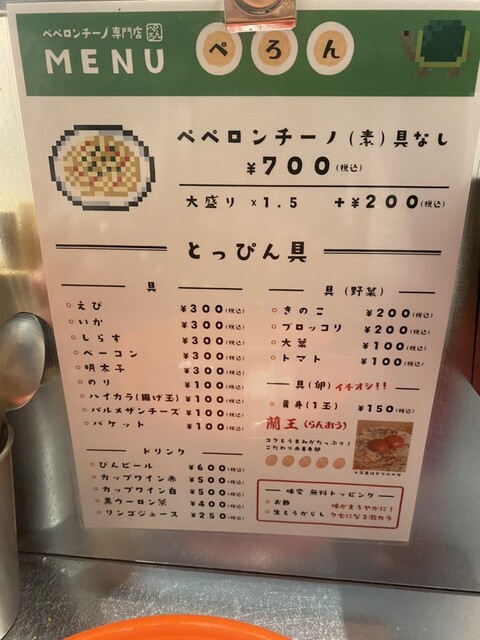 ペペロンチーノ専門店 ぺろん
MENU
ぺろん
ペペロンチーノ(素)具なし
¥700(税込)
大盛り ×1.5 +¥200(税込)
とっぴん具
具
えび ¥300(税込)
いか ¥300(税込)
しらす ¥300(税込)
ベーコン ¥300(税込)
明太子 ¥300(税込)
のり ¥100(税込)
ハイカラ(揚げ玉) ¥100(税込)
パルメザンチーズ ¥100(税込)
バケット ¥100(税込)
ドリンク
びんビール ¥600(税込)
カップワイン赤 ¥500(税込)
カップワイン白 ¥500(税込)
黒ウーロン茶 ¥400(税込)
リンゴジュース ¥250(税込)
具(野菜)
きのこ ¥200(税込)
ブロッコリ ¥200(税込)
大葉 ¥100(税込)
トマト ¥100(税込)
具(卵)イチオシ!!
黄身(1玉) ¥150(税込)
蘭王(らんおう)
コクとうまみがたっぷり!
こだわり赤身卵
味変 無料トッピング
お酢 味がまろやかに!
生とうがらし クセになる激カラ